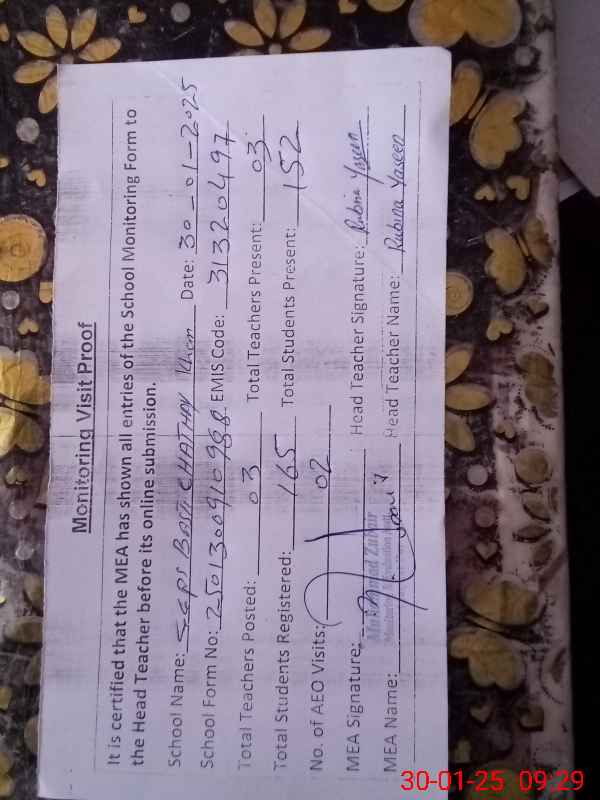 Monitoring Visit Proof
It is certified that the MEA has shown all entries of the School Monitoring Form to
the Head Teacher before its online submission.
School Name: Date: 30-01-2025
School Form No: EMIS Code: 31320497
Total Teachers Posted: 03 Total Teachers Present: 03
Total Students Registered: 165 Total Students Present: 152
No. of AEO Visits: 02
MEA Signature: Head Teacher Signature: Rubina Yaseen
MEA Name: Head Teacher Name: Rubina Yaseen
30-01-25 09:29